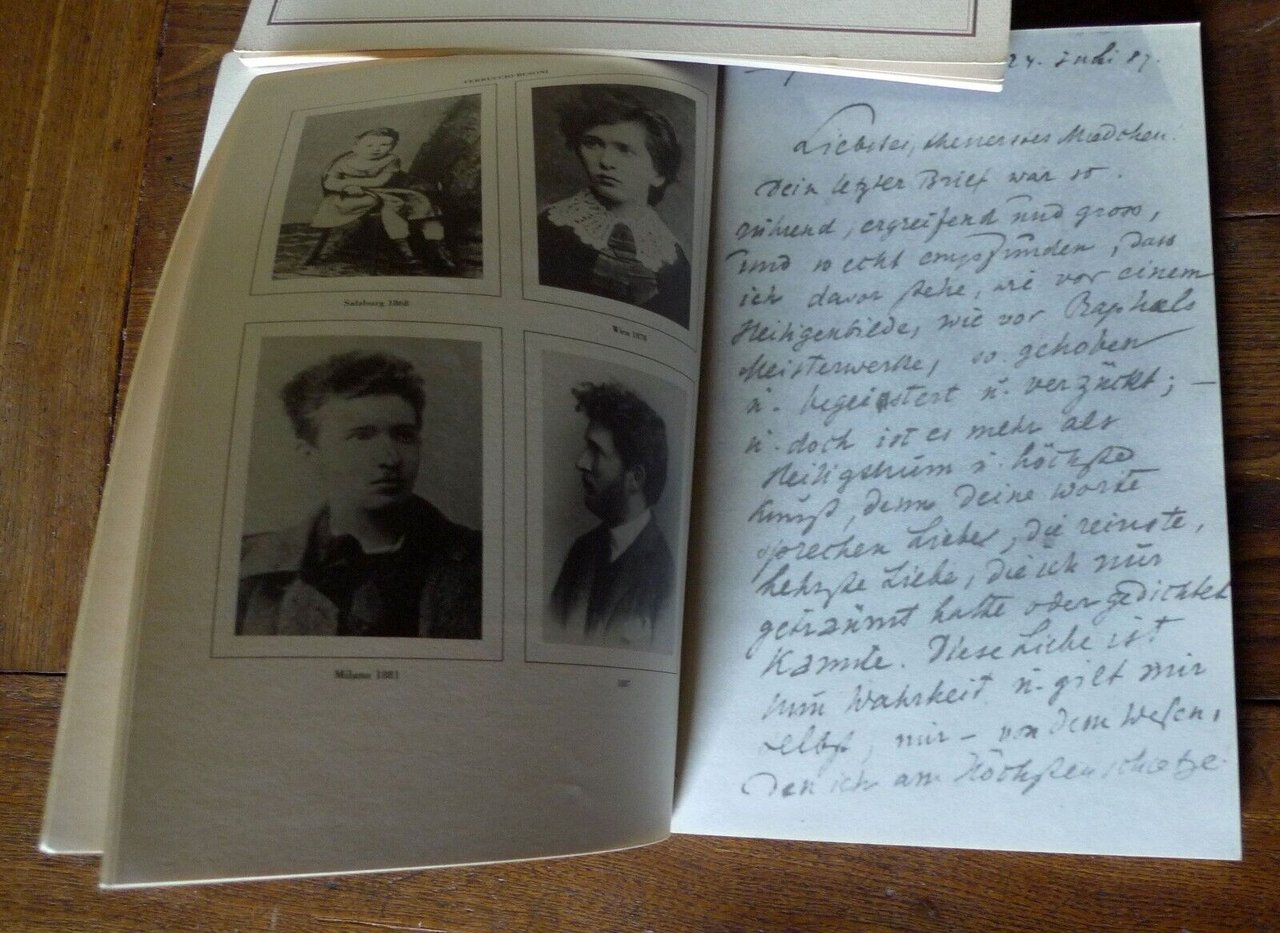 FERRUCCIO BUSONI
Salzburg 1868
Wien 1876
Milano 1881
24. Juli 89.
Liebstes, theuerstes Mädchen!
Dein letzter Brief war so
rührend, ergreifend und gross,
und so echt empfunden, dass
ich davor stehe, wie vor einem
Heiligenbilde, wie vor Raphaels
Meisterwerke, so gehoben
u. begeistert u. verzückt; –
u. doch ist es mehr als
Heiligthum u. höchste
Kunst, denn Deine Worte
sprechen Liebe, die reinste,
hehrste Liebe, die ich nur
geträumt hatte oder gedichtet
kannte. Diese Liebe ist
nun Wahrheit u. gilt mir
selbst, mir – von dem Wesen,
den ich am höchsten schätze.